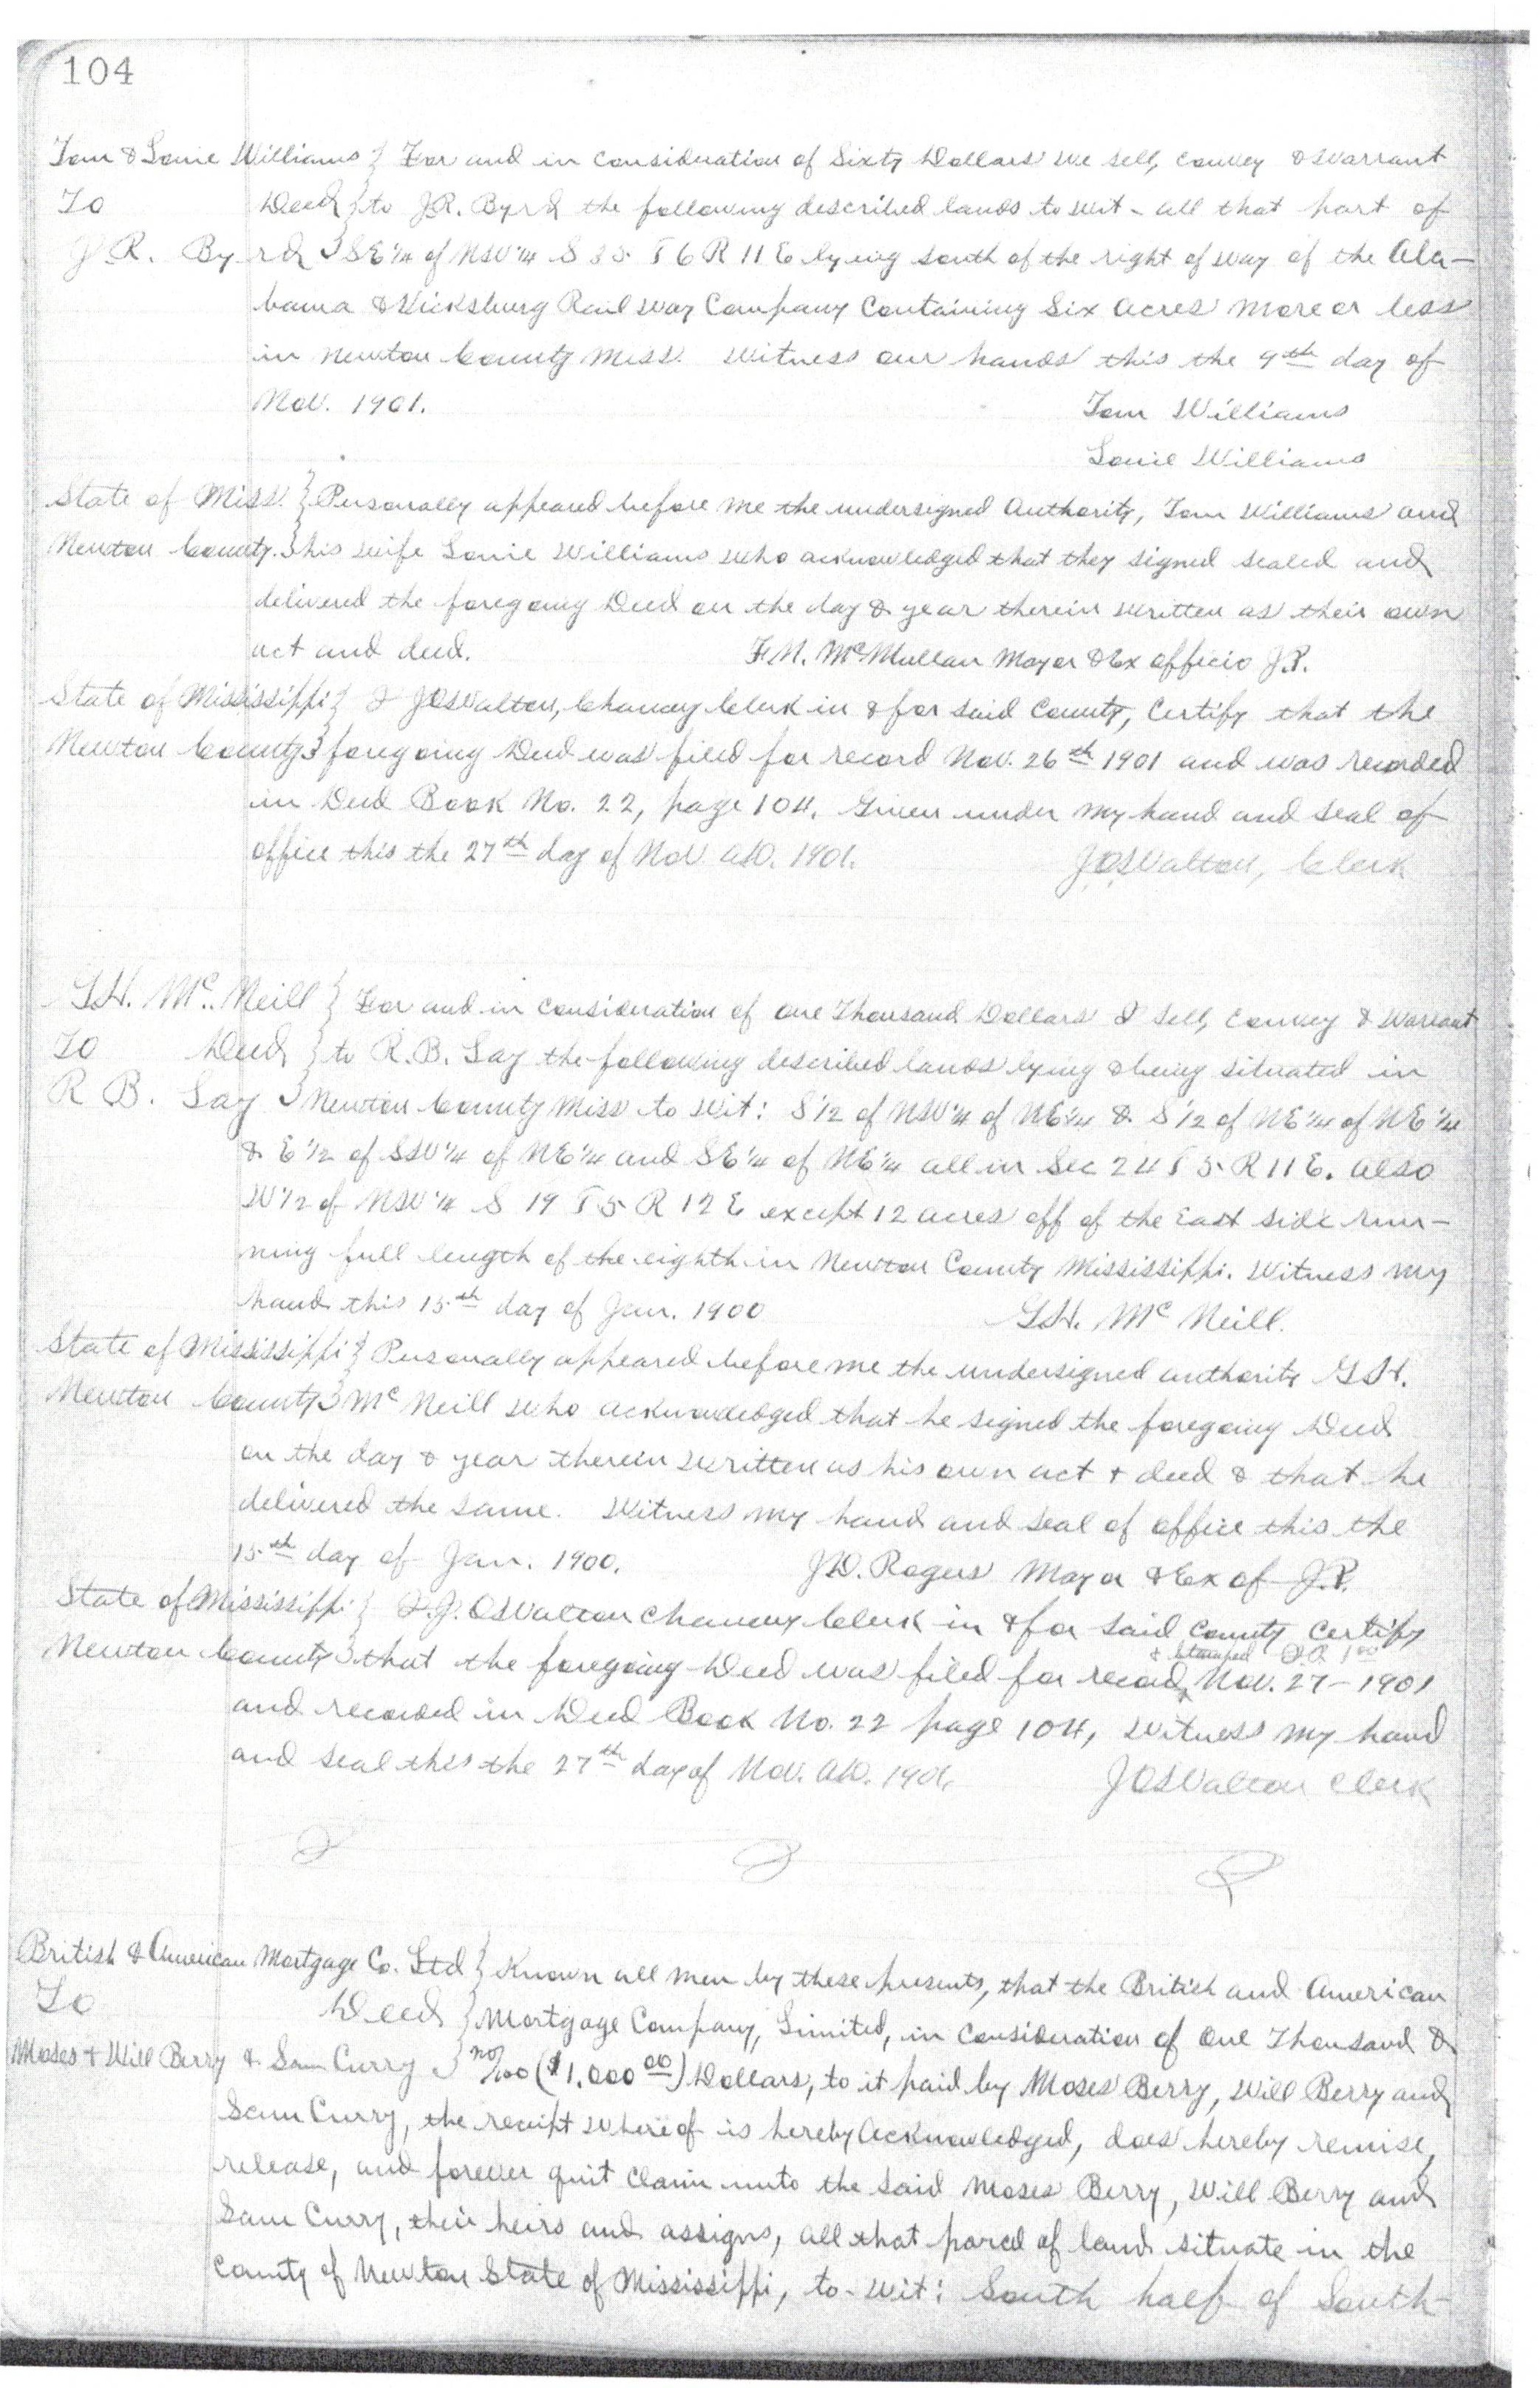 104
Tom & Lonie Williams } For and in consideration of Sixty Dollars we sell, convey & warrant
To Deed } to J.R. Byrd the following described lands to wit - all that part of
J.R. Byrd } SE 1/4 of NW 1/4 S 35 T 6 R 11 E lying south of the right of way of the Ala-
bama & Vicksburg Rail way Company Containing Six acres more or less
in Newton County Miss. Witness our hands this the 9th day of
Nov. 1901. Tom Williams
Lonie Williams
State of Miss. } Personally appeared before me the undersigned Authority, Tom Williams and
Newton County. } his wife Lonie Williams who acknowledged that they signed sealed and
delivered the foregoing Deed on the day & year therein written as their own
act and deed. F.N. McMullan Mayor & Ex officio J.P.
State of Mississippi } I J O Walton, Chancy Clerk in & for said County, Certify that the
Newton County } foregoing Deed was filed for record Nov. 26th 1901 and was recorded
in Deed Book No. 22, page 104. Given under my hand and seal of
office this the 27th day of Nov AD. 1901. J O Walton, Clerk
G.H. McNeill } For and in consideration of One Thousand Dollars I sell, convey & warrant
To Deed } to R.B. Lay the following described lands lying & being situated in
R B. Lay } Newton County Miss to wit: S 1/2 of NW 1/4 of NE 1/4 & S 1/2 of NE 1/4 of NE 1/4
& E 1/2 of SW 1/4 of NE 1/4 and SE 1/4 of NE 1/4 all in Sec 24 T 5 R 11 E. also
W 1/2 of NW 1/4 S 19 T 5 R 12 E except 12 acres off of the East side run-
ning full length of the eighth in Newton County Mississippi. Witness my
hand this 15th day of Jan. 1900 G.H. McNeill.
State of Mississippi } Personally appeared before me the undersigned authority G.H.
Newton County } McNeill who acknowledged that he signed the foregoing Deed
on the day & year therein written as his own act & deed & that he
delivered the same. Witness my hand and seal of office this the
15th day of Jan. 1900. J.D. Rogers Mayor & Ex of J.P.
State of Mississippi } I J. O Walton Chancy Clerk in & for said County Certify
& stamped
Newton County } that the foregoing Deed was filed for record, Nov. 27 - 1901
and recorded in Deed Book No. 22 page 104, Witness my hand
and seal this the 27th day of Nov. AD. 1901, J O Walton Clerk
British & American Mortgage Co. Ltd } Known all men by these presents, that the British and American
To Deed } Mortgage Company, Limited, in consideration of One Thousand &
Moses & Will Berry & Sam Curry } no/100 ($1,000 00) Dollars, to it paid by Moses Berry, Will Berry and
Sam Curry, the receipt whereof is hereby Acknowledged, does hereby remise,
release, and forever quit claim unto the said Moses Berry, Will Berry and
Sam Curry, their heirs and assigns, all that parcel of land situate in the
County of Newton State of Mississippi, to-wit: South half of South-